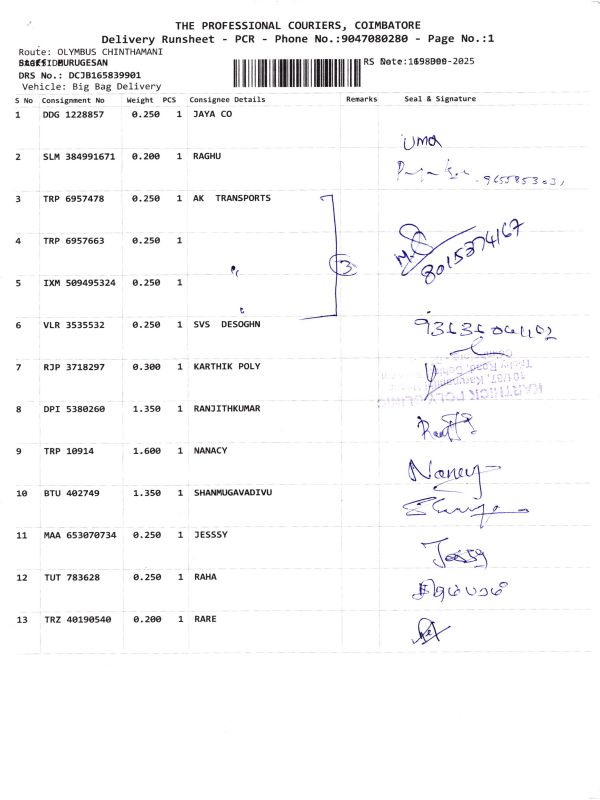 THE PROFESSIONAL COURIERS, COIMBATORE
Delivery Runsheet - PCR - Phone No.:9047080280 - Page No.:1
Route: OLYMBUS CHINTHAMANI
DRS No.: DCJB165839901
Vehicle: Big Bag Delivery
S No Consignment No Weight PCS Consignee Details Remarks Seal & Signature
1 DDG 1228857 0.250 1 JAYA CO
UMA
2 SLM 384991671 0.200 1 RAGHU
3 TRP 6957478 0.250 1 AK TRANSPORTS
4 TRP 6957663 0.250 1
3
8015374167
5 IXM 509495324 0.250 1
6 VLR 3535532 0.250 1 SVS DESOGHN
7 RJP 3718297 0.300 1 KARTHIK POLY
KARTHICK POLY CLINIC
8 DPI 5380260 1.350 1 RANJITHKUMAR
9 TRP 10914 1.600 1 NANACY
Nancy
10 BTU 402749 1.350 1 SHANMUGAVADIVU
11 MAA 653070734 0.250 1 JESSSY
Jessy
12 TUT 783628 0.250 1 RAHA
13 TRZ 40190540 0.200 1 RARE